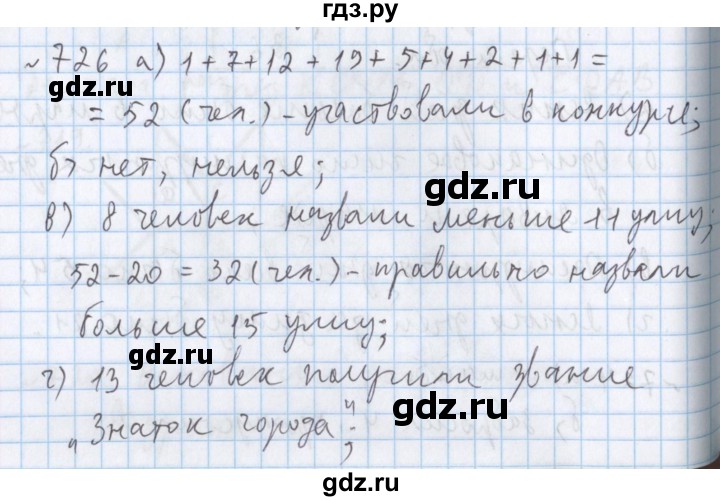 гдз.рф
№ 726 а) 1+7+12+19+5+4+2+1+1=
= 52 (чел.) - участвовали в конкурсе;
б) нет, нельзя;
в) 8 человек назвали меньше 11 улиц;
52-20 = 32 (чел.) - правильно назвали
больше 15 улиц;
г) 13 человек получили звание
„Знаток города“;
gdz.ru
gdz.ru
gdz.ru
gdz.ru
gdz.ru
gdz.ru
gdz.ru